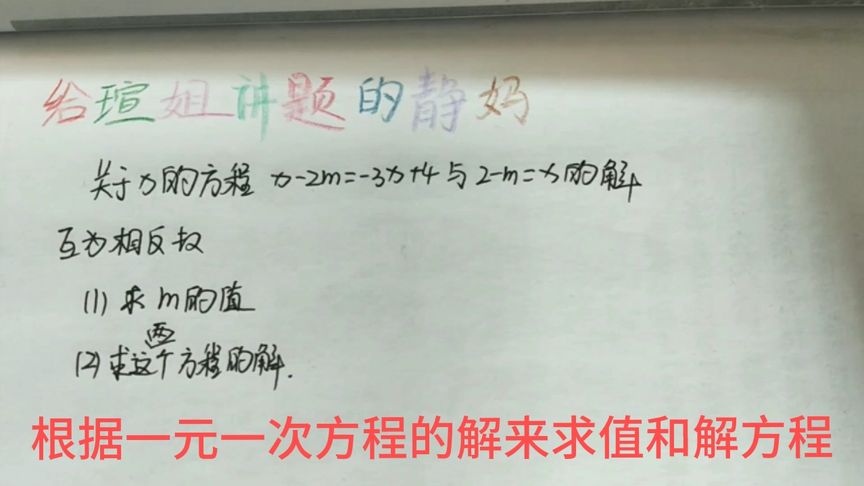 给瑄姐讲题的静妈
关于x的方程 x-2m=-3x+4与2-m=x的解
互为相反数
(1) 求m的值
(2) 求这两个方程的解.
根据一元一次方程的解来求值和解方程